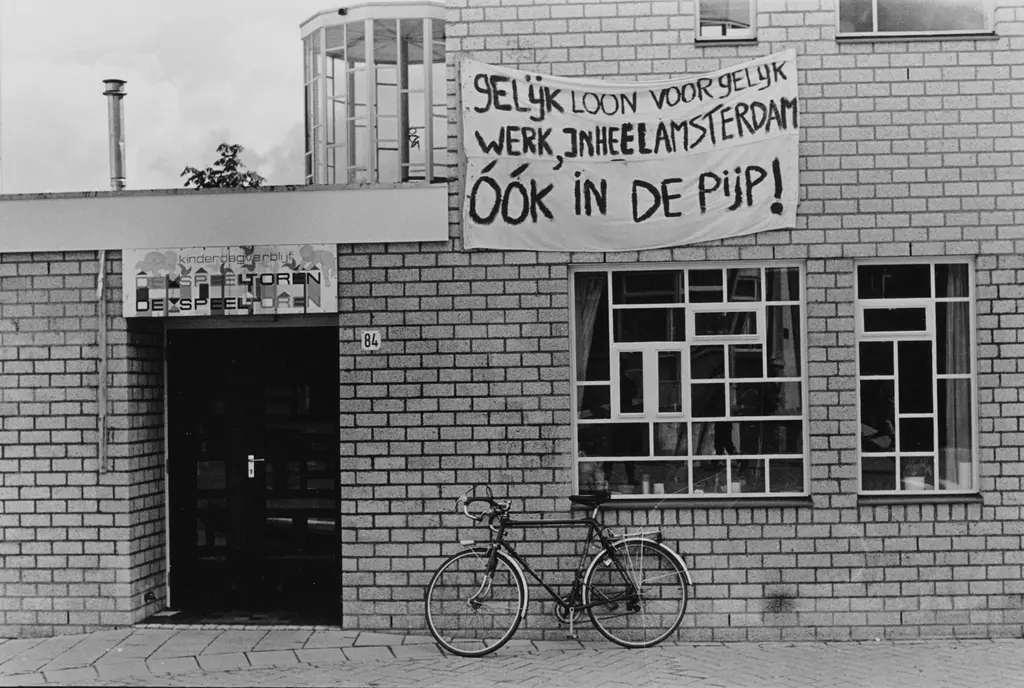 gELijK LOON VOOR gELIJK
WERK, IN HEEL AMSTERDAM
ÓÓK iN DE PijP!
kinderdagverblijf
DE SPEELTOREN
DE SPEELTUIN
84